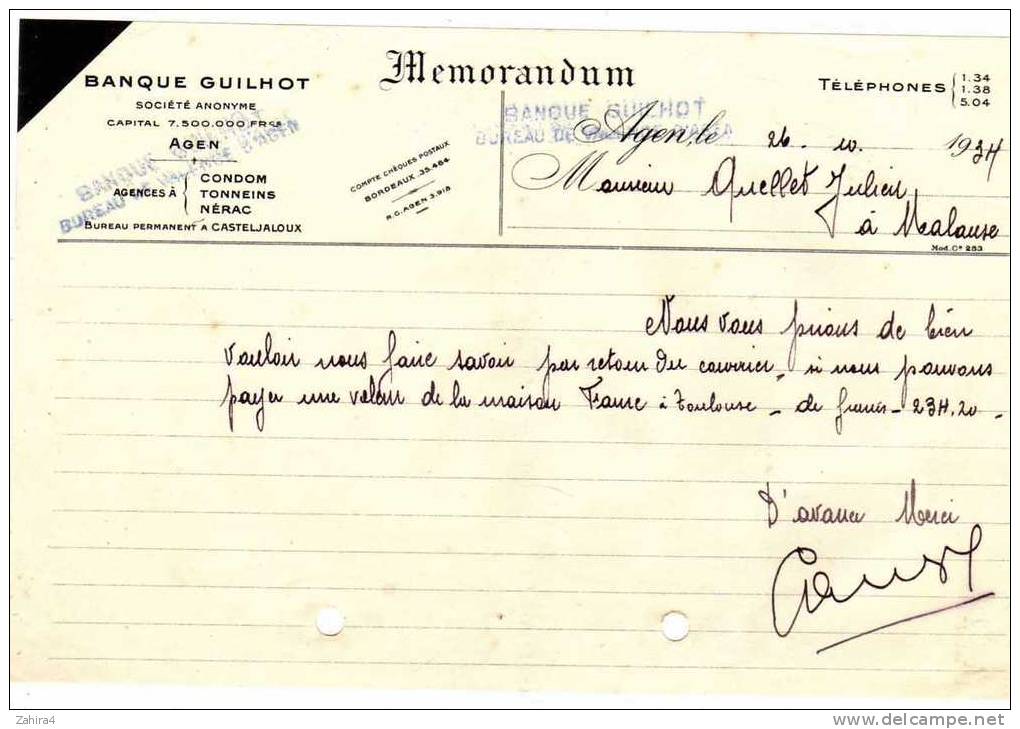 Memorandum
BANQUE GUILHOT
SOCIÉTÉ ANONYME
CAPITAL 7.500.000 FRCS
AGEN
AGENCES À { CONDOM
TONNEINS
NÉRAC
BUREAU PERMANENT À CASTELJALOUX
BANQUE GUILHOT
BUREAU DE VALENCE D'AGEN
COMPTE CHÈQUES POSTAUX
BORDEAUX 35.464
R.C. AGEN 3.918
TÉLÉPHONES { 1.34
1.38
5.04
BANQUE GUILHOT
BUREAU DE VALENCE D'AGEN
Agen, le 26. 10. 1934
Monsieur Quellet Julien
à Malause
Mod. C° 253
Nous vous prions de bien
vouloir nous faire savoir par retour du courrier, si nous pouvons
payer une valeur de la maison à Toulouse - de francs - 234.20 -
D'avance Merci
Zahira4
delcampe.net